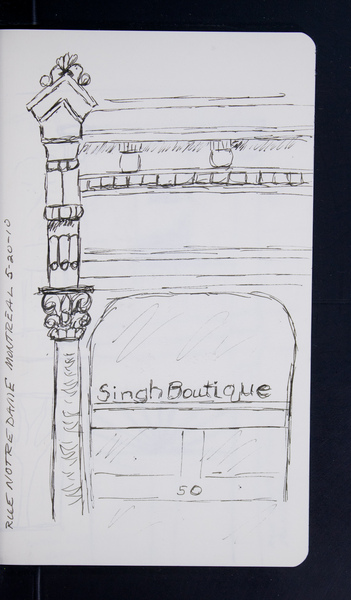 RUE NOTRE DAME MONTREAL 5-20-10
Singh Boutique
50